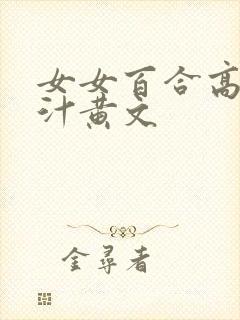 女女百合高
汁黄文
金尋者